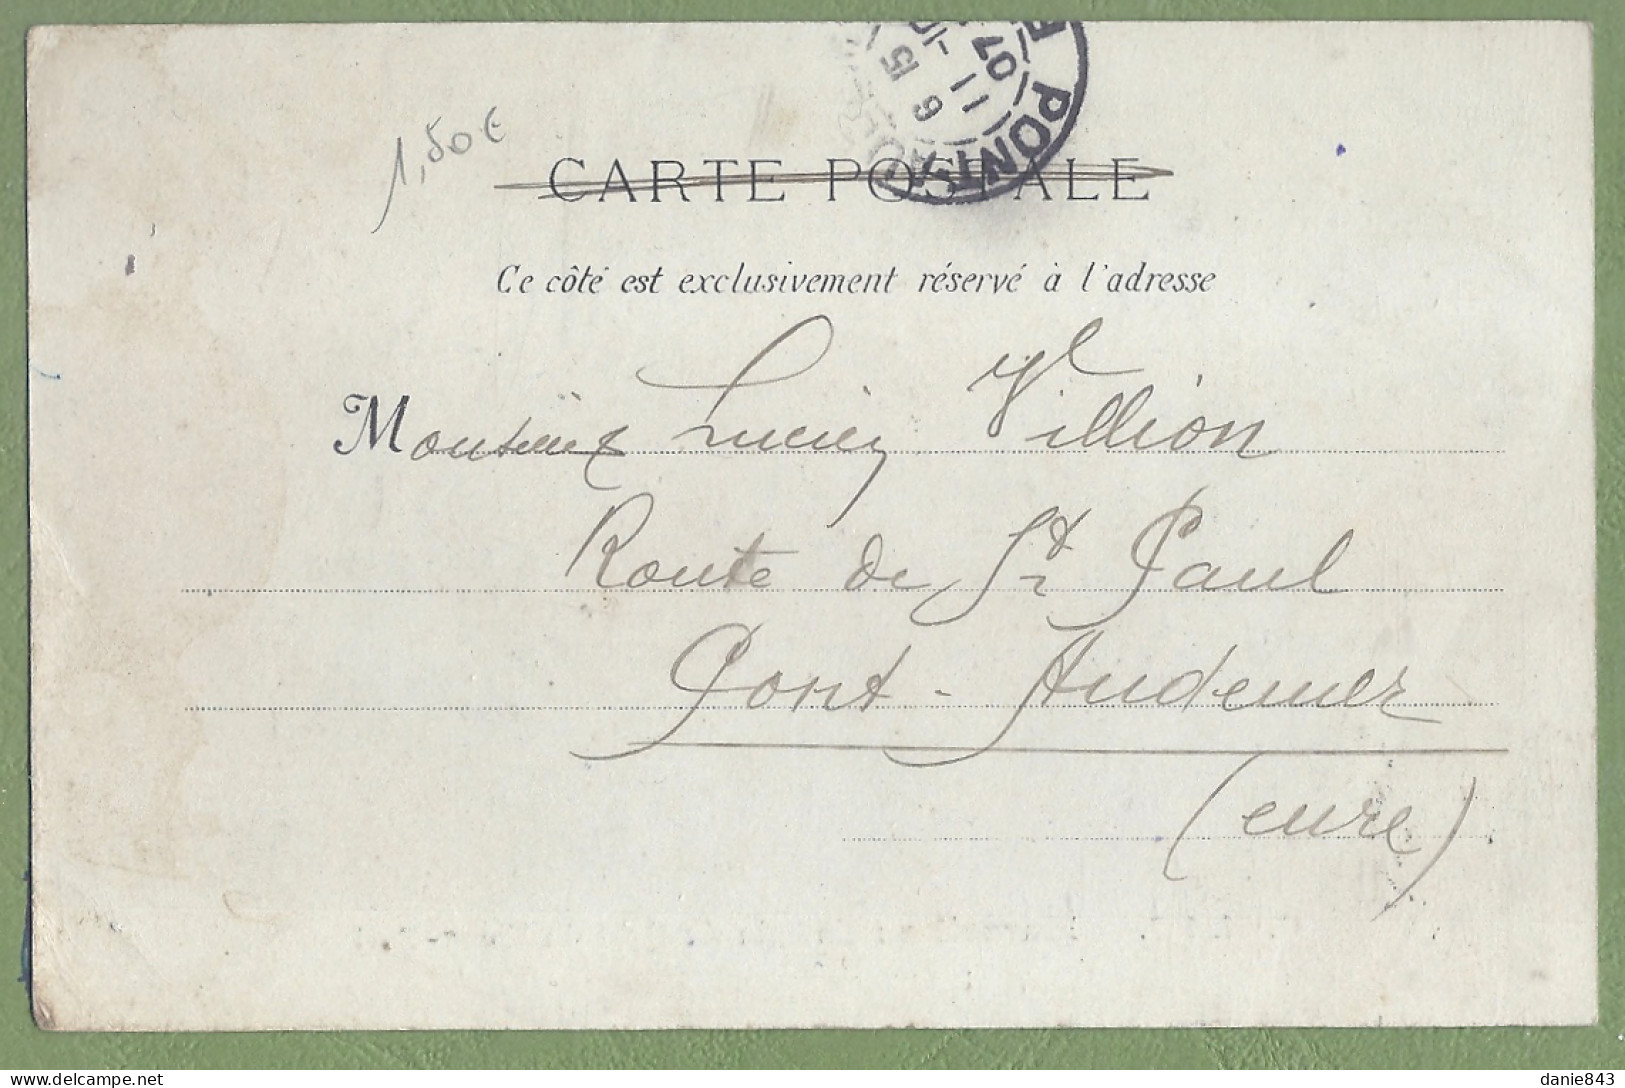 1,50€
PONT-AU
9 15
11 -10
07
CARTE POSTALE
Ce côté est exclusivement réservé à l'adresse
Monsieur Lucien Villion
Route de St Paul
Pont-Audemer
(eure)
delcampe.net
danie843